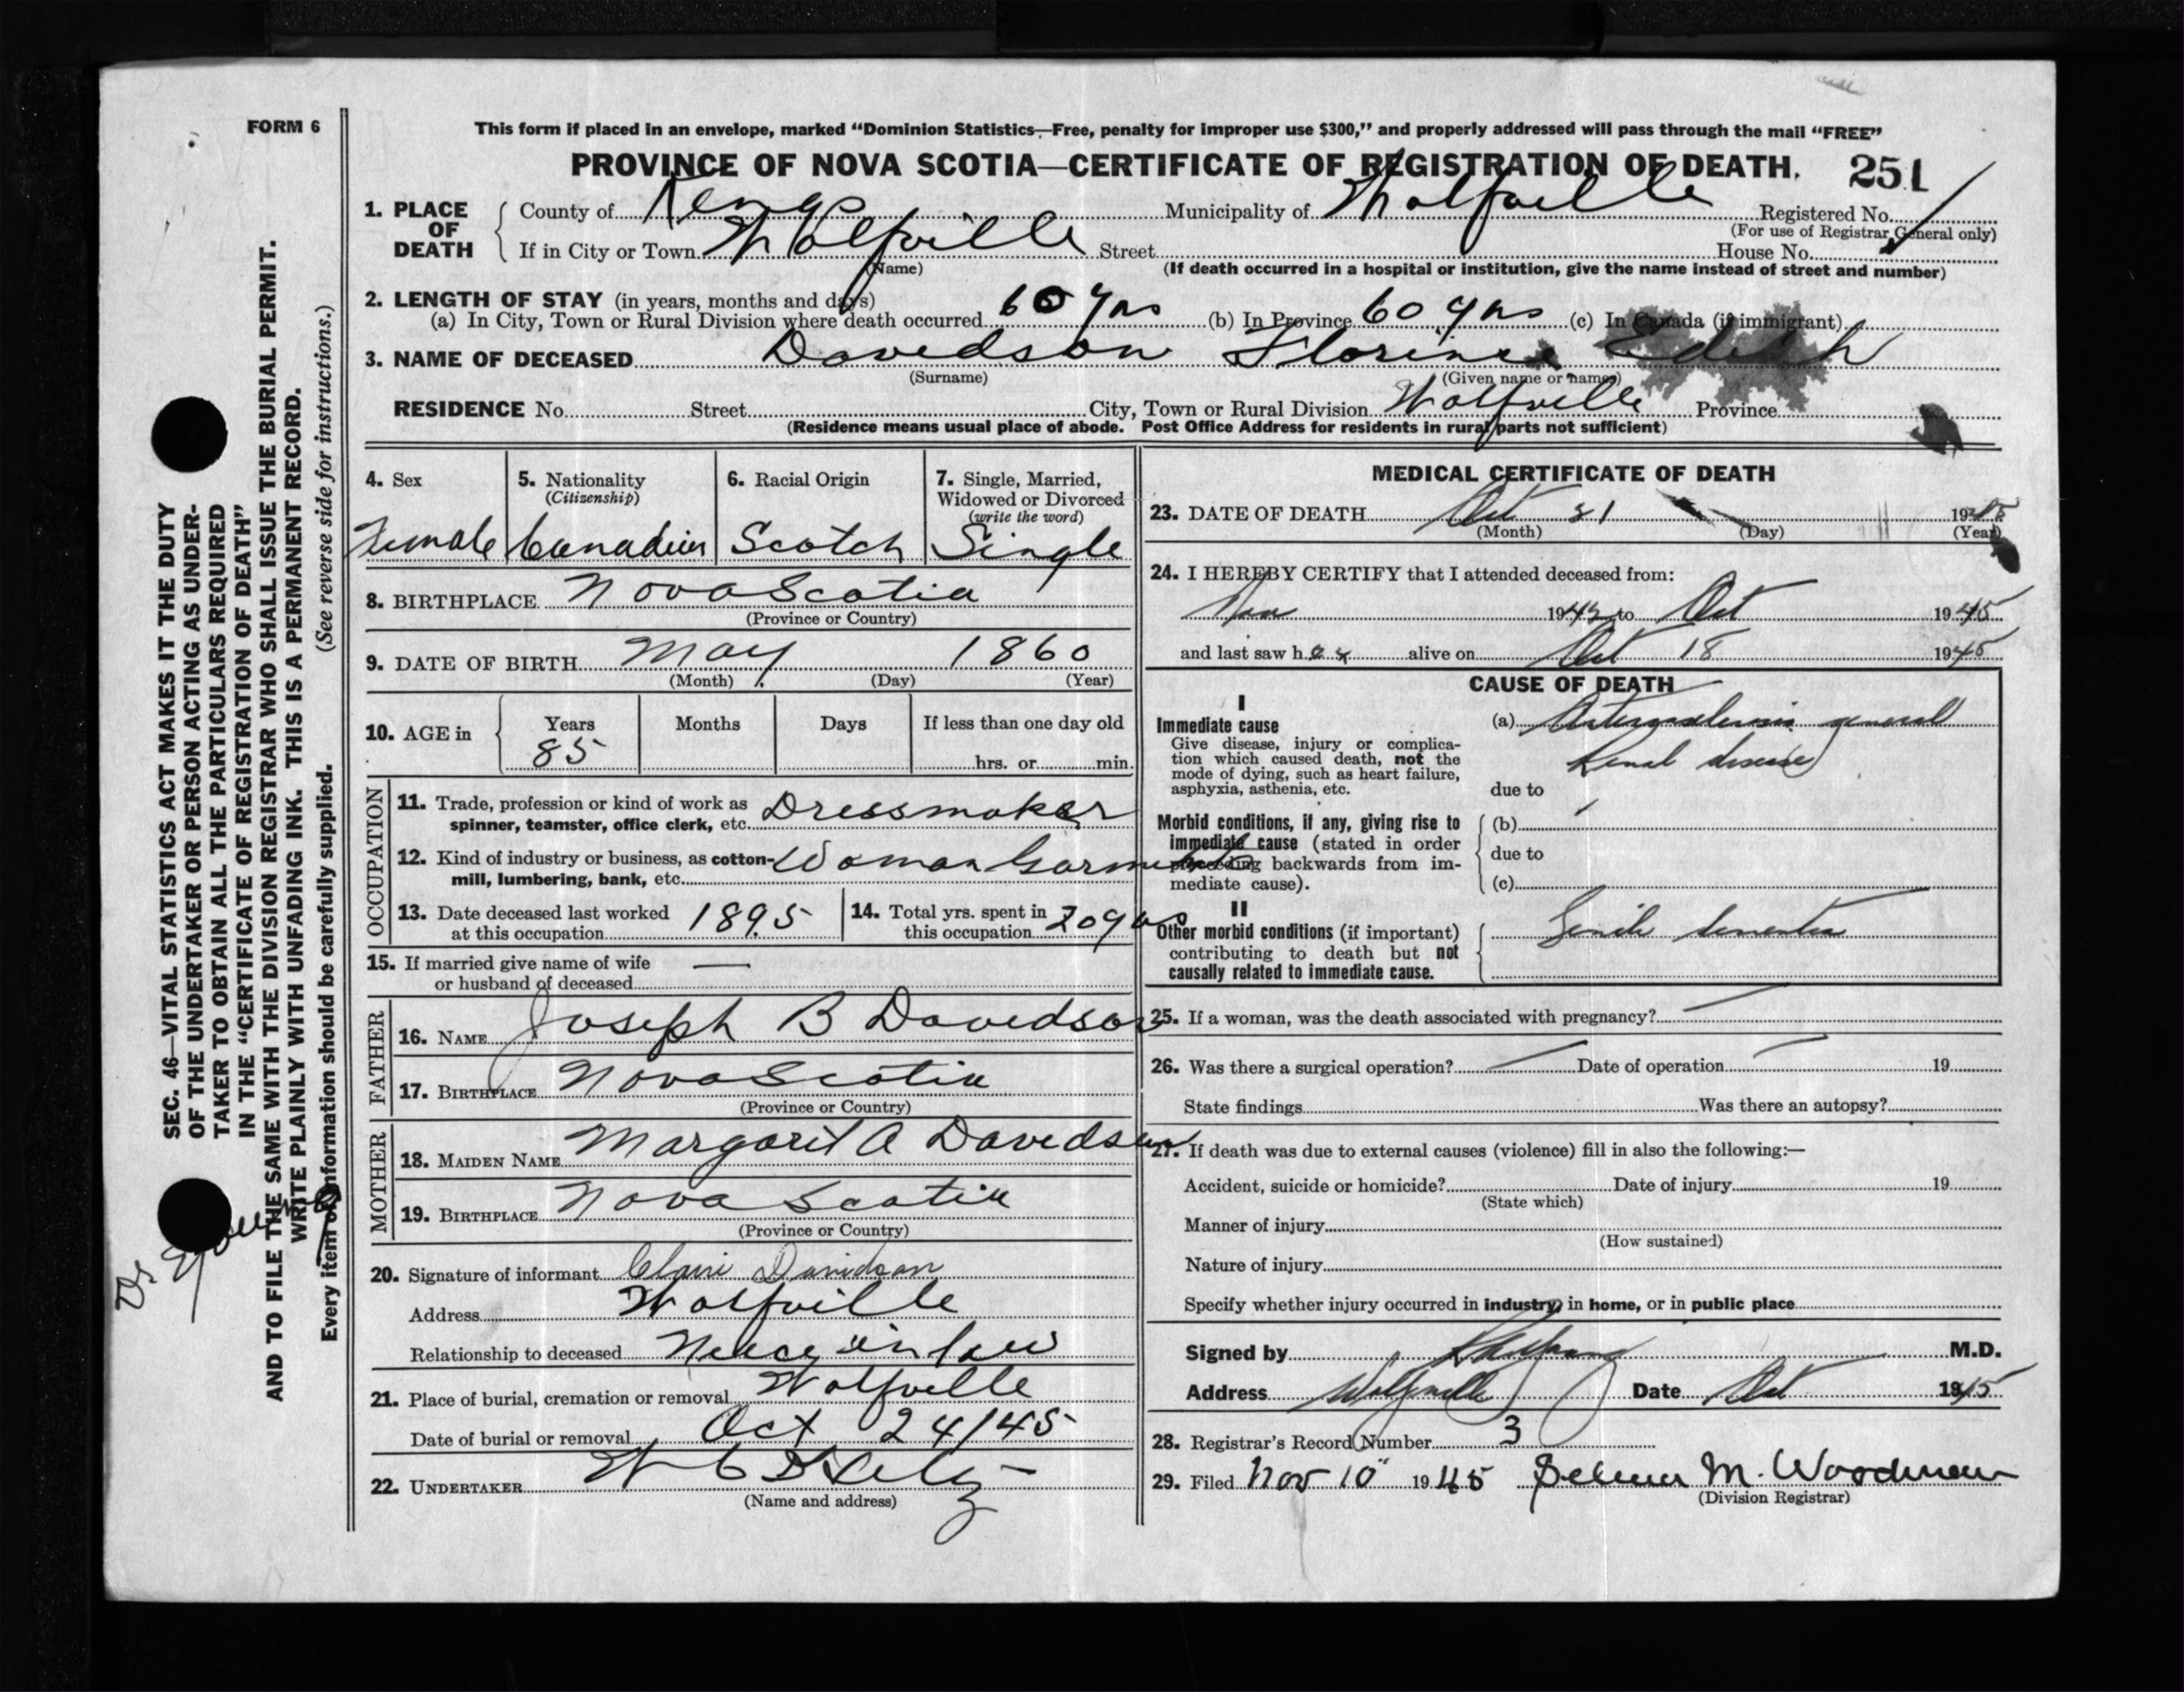 FORM 6
This form if placed in an envelope, marked “Dominion Statistics—Free, penalty for improper use $300,” and properly addressed will pass through the mail “FREE”
PROVINCE OF NOVA SCOTIA—CERTIFICATE OF REGISTRATION OF DEATH. 251
1. PLACE OF DEATH County of Kings Municipality of Wolfville Registered No.
(For use of Registrar General only)
If in City or Town Wolfville Street House No.
(Name) (If death occurred in a hospital or institution, give the name instead of street and number)
2. LENGTH OF STAY (in years, months and days)
(a) In City, Town or Rural Division where death occurred 60 yrs (b) In Province 60 yrs (c) In Canada (if immigrant)
3. NAME OF DECEASED Davidson Florence Edith
(Surname) (Given name or names)
RESIDENCE No. Street City, Town or Rural Division Wolfville Province
(Residence means usual place of abode. Post Office Address for residents in rural parts not sufficient)
4. Sex
Female
5. Nationality
(Citizenship)
Canadian
6. Racial Origin
Scotch
7. Single, Married,
Widowed or Divorced
(write the word)
Single
8. BIRTHPLACE Nova Scotia
(Province or Country)
9. DATE OF BIRTH May 1860
(Month) (Day) (Year)
10. AGE in Years Months Days If less than one day old
85 hrs. or min.
OCCUPATION
11. Trade, profession or kind of work as
spinner, teamster, office clerk, etc. Dressmaker
12. Kind of industry or business, as cotton-
mill, lumbering, bank, etc. Woman Garments
13. Date deceased last worked
at this occupation 1895
14. Total yrs. spent in
this occupation 20 yrs
15. If married give name of wife
or husband of deceased —
FATHER
16. NAME Joseph B Davidson
17. BIRTHPLACE Nova Scotia
(Province or Country)
MOTHER
18. MAIDEN NAME Margaret A Davidson
19. BIRTHPLACE Nova Scotia
(Province or Country)
20. Signature of informant Claire Davidson
Address Wolfville
Relationship to deceased Neice in law
21. Place of burial, cremation or removal Wolfville
Date of burial or removal Oct 24/45
22. UNDERTAKER W C
(Name and address)
MEDICAL CERTIFICATE OF DEATH
23. DATE OF DEATH Oct 21 1945
(Month) (Day) (Year)
24. I HEREBY CERTIFY that I attended deceased from:
Nov 1942 to Oct 1945
and last saw her alive on Oct 18 1945
CAUSE OF DEATH
I
Immediate cause
Give disease, injury or complica-
tion which caused death, not the
mode of dying, such as heart failure,
asphyxia, asthenia, etc.
(a) Arteriosclerosis general
Renal disease
due to
Morbid conditions, if any, giving rise to
immediate cause (stated in order
proceeding backwards from im-
mediate cause).
(b)
due to
(c)
II
Other morbid conditions (if important)
contributing to death but not
causally related to immediate cause.
Senile dementia
25. If a woman, was the death associated with pregnancy?
26. Was there a surgical operation? Date of operation 19
State findings Was there an autopsy?
27. If death was due to external causes (violence) fill in also the following:—
Accident, suicide or homicide? Date of injury 19
(State which)
Manner of injury
(How sustained)
Nature of injury
Specify whether injury occurred in industry, in home, or in public place
Signed by M.D.
Address Wolfville Date Oct 1945
28. Registrar's Record Number 3
29. Filed Nov 10 1945 M. Woodman
(Division Registrar)
SEC. 46—VITAL STATISTICS ACT MAKES IT THE DUTY
OF THE UNDERTAKER OR PERSON ACTING AS UNDER-
TAKER TO OBTAIN ALL THE PARTICULARS REQUIRED
IN THE “CERTIFICATE OF REGISTRATION OF DEATH”
AND TO FILE THE SAME WITH THE DIVISION REGISTRAR WHO SHALL ISSUE THE BURIAL PERMIT.
WRITE PLAINLY WITH UNFADING INK. THIS IS A PERMANENT RECORD.
Every item of information should be carefully supplied. (See reverse side for instructions.)